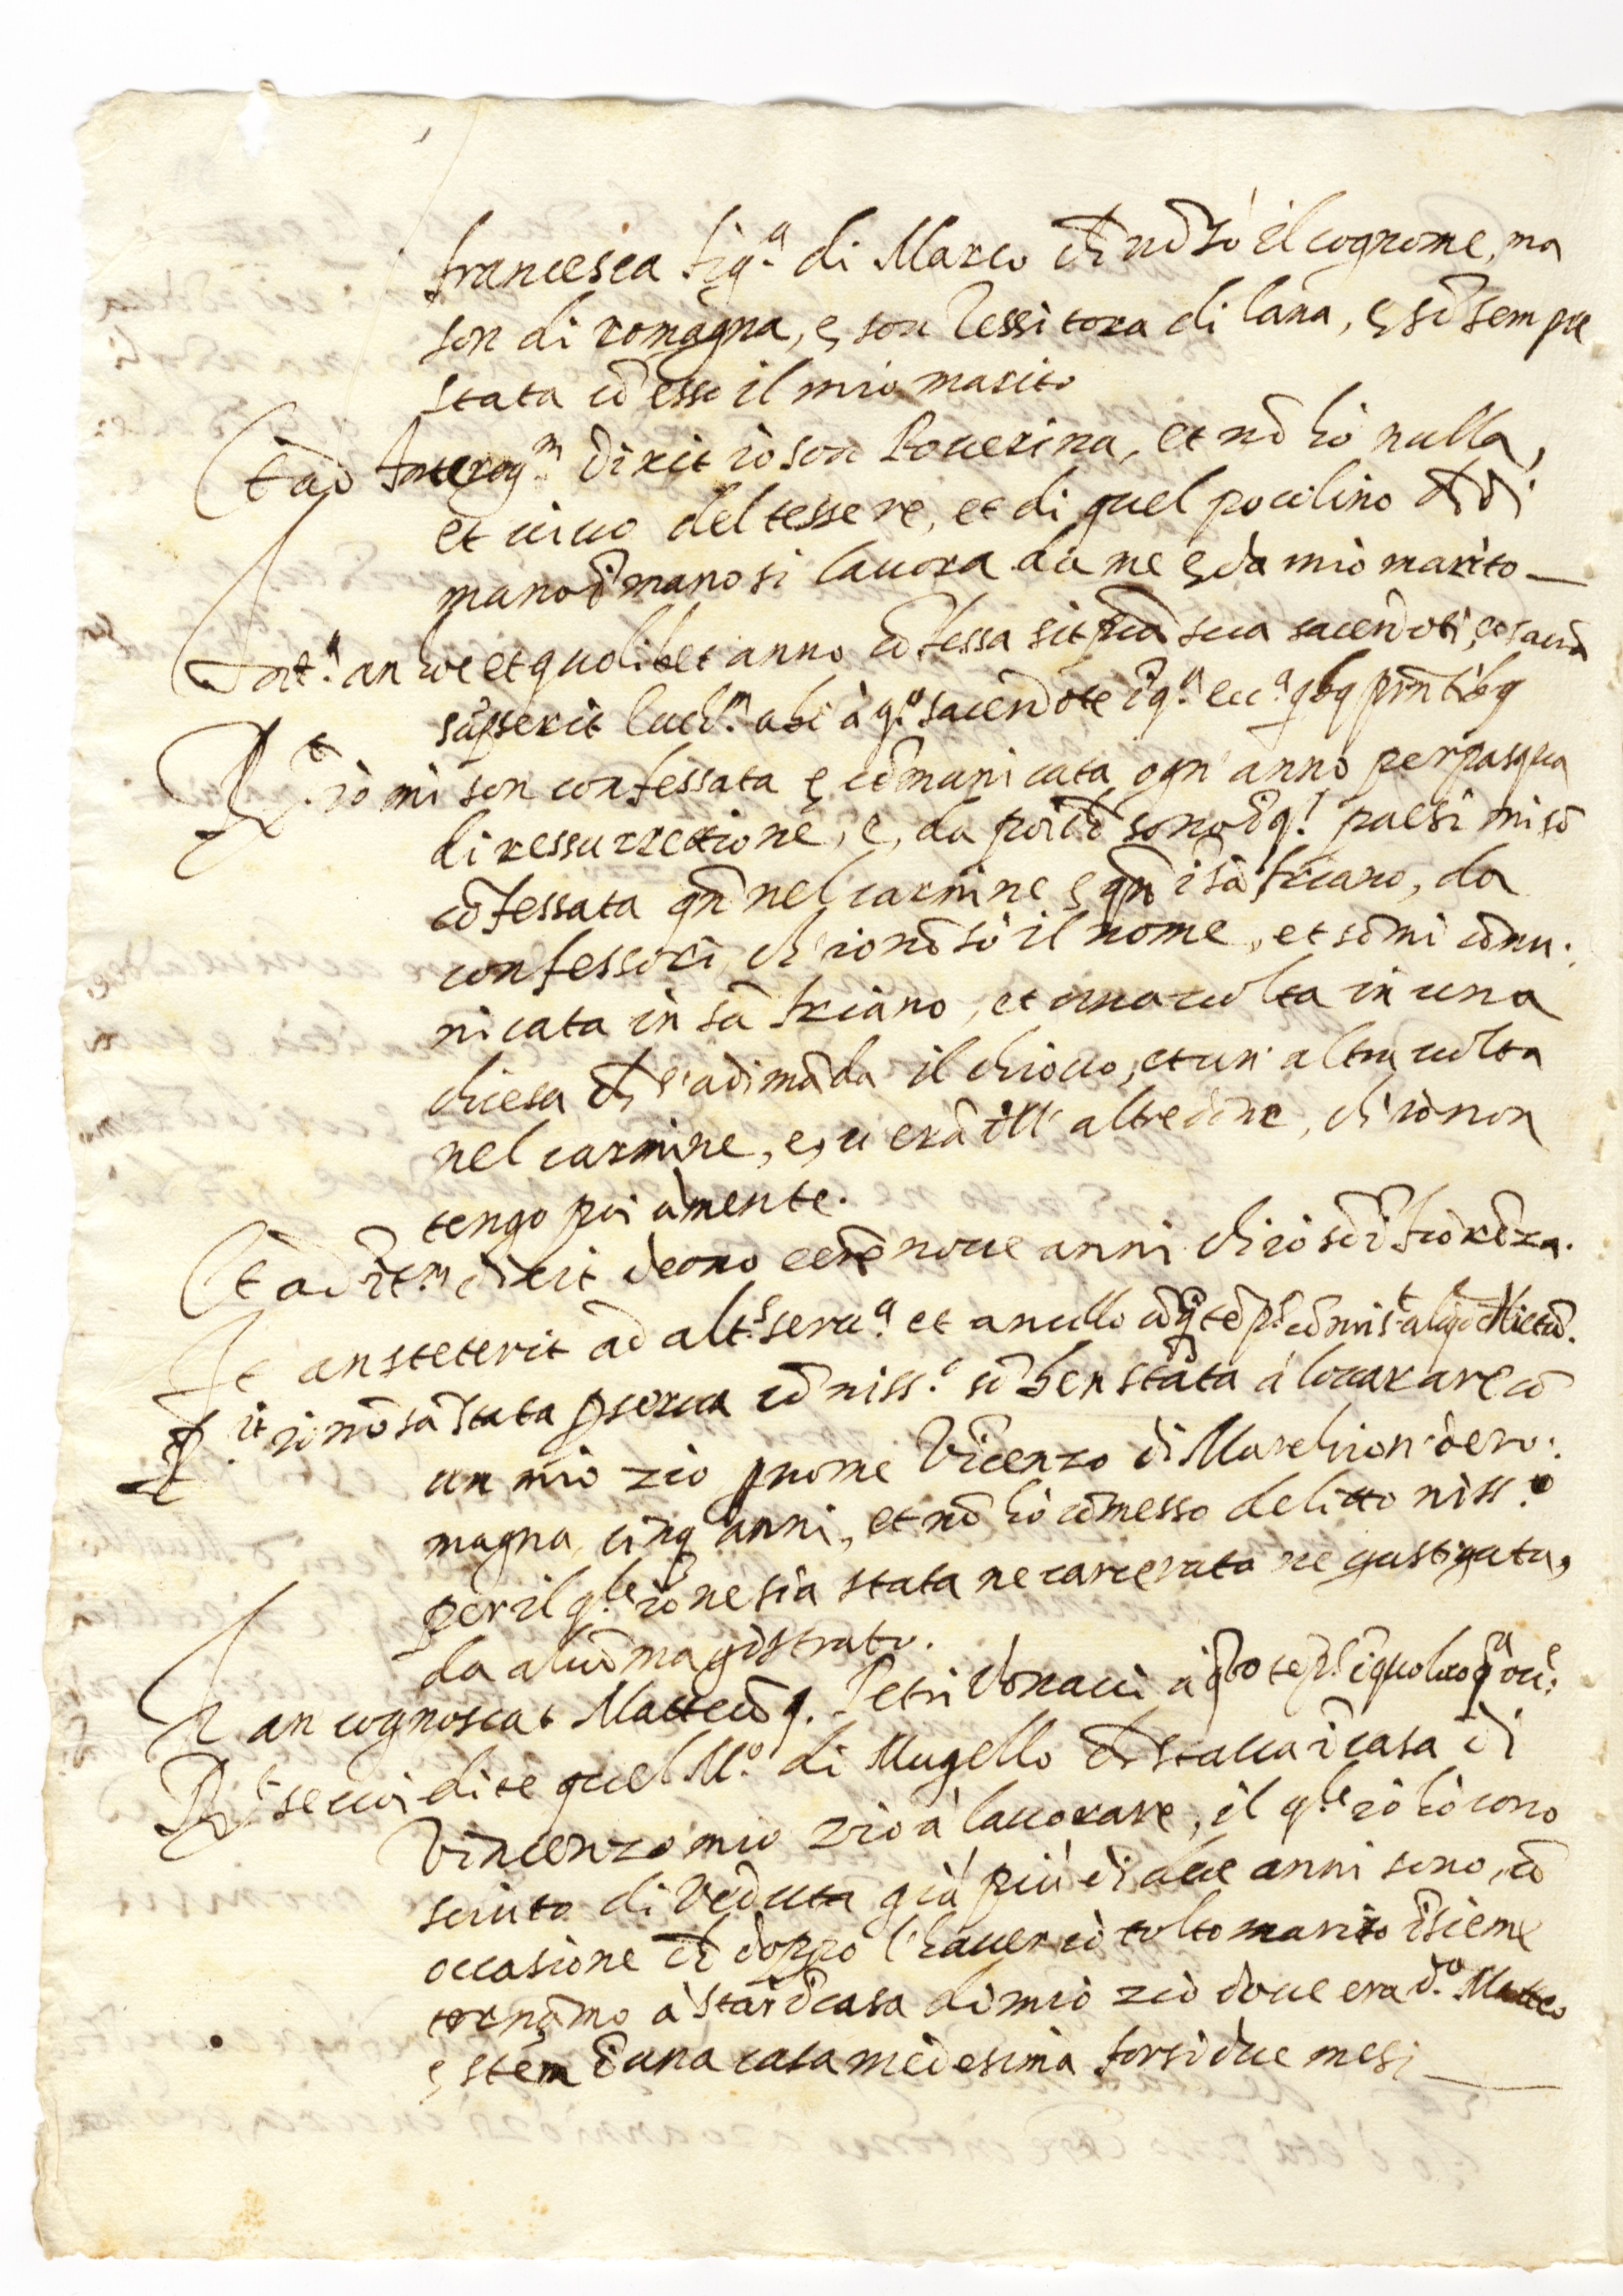 francesca fig.a di Marco ch nō sò il cognome, ma
son di romagna, e son Tessitora di lana, e sō sempre
stata cō esso il mio marito
Et ad Interrog.m dixit io son Pouerina, et nō hò nulla,
et uiuo del tessere, et di quel pocolino ch di
mano ī mano si lauora da me e da mio marito
Int.a an hoc et quolibet anno cōfessa sit pctā sua sacerdoti, et sacrā
sūpserit Euch.m ubi à q.o sacerdote ī q.a ecc.a qbq pn̄tibq
R.t io mi son confessata e cōmunicata ogn' anno per pasqua
di ressurrectione, e, da poi ch sono ī q.i paesi mi sō
cōfessata qn̄ nel carmine e qn̄ ī sā friano, da
confessori, ch' io nō sò il nome, et sōmi cōmu.
nicata in sā friano, et una uolta in una
chiesa ch s'adimāda il chiodo, et un' altra uolta
nel carmine, e, u erā dll' altre dōne, ch' io non
tengo poi à mente.
Et ad It.m dixit deono eēre noue anni ch io sō ī fiorēza.
It an steterit ad alt.s seru.a et an ullo ūq tēp.e cōmis.t aliqd dlictū.
R.it io nō sā stata p serua cō niss.o sō ben stata à lauorare cō
un mio zio p nome Vicenzo di Marchion' de ro.
magna, cinq' anni, et nō hò cōmesso delitto niss.o
per il q.le io ne sia stata ne carcerata ne gastigata,
da alcū magistrato.
It an cognoscat Matteū q. Petri Donacci à qto tēp.e ī quo loco q.a occ.e
R.t se uoi dite quel M.o di Mugello ch staua ī casa di
Vincenzo mio zio à lauorare, il q.le io hò cono
sciuto di Veduta già più di due anni sono, cō
occasione ch doppo l'hauer io tolto marito īsieme
tornāmo à star ī casa di mio zio doue era d.o Matteo
e stēm ī una casa medesima forsi due mesi